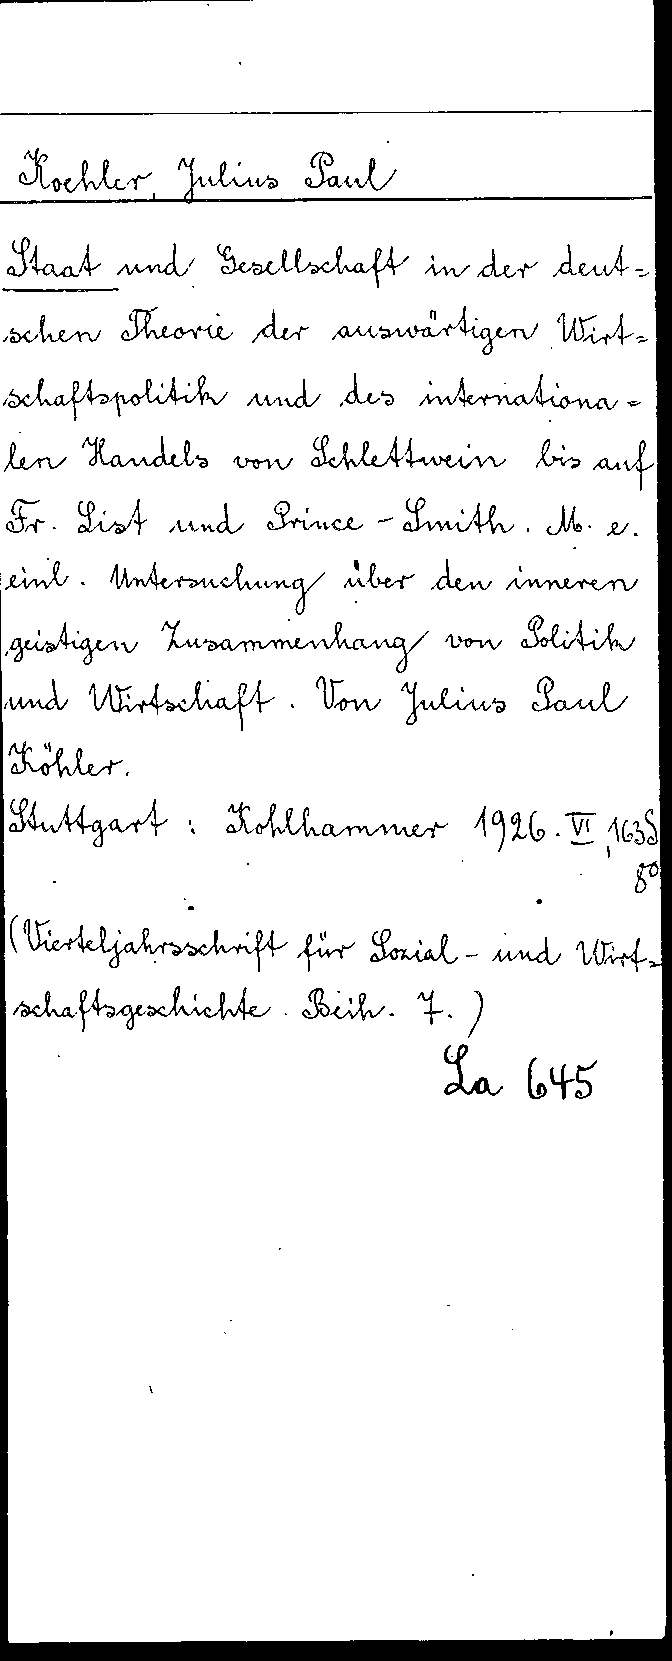 Koehler, Julius Paul
Staat und Gesellschaft in der deut=
schen Theorie der auswärtigen Wirt=
schaftspolitik und des internationa=
len Handels von Schlettwein bis auf
Fr. List und Prince-Smith. M. e.
einl. Untersuchung über den inneren
geistigen Zusammenhang von Politik
und Wirtschaft. Von Julius Paul
Köhler.
Stuttgart: Kohlhammer 1926. VI, 163S
8°
(Vierteljahrsschrift für Sozial- und Wirt=
schaftsgeschichte. Beih. 7.)
La 645